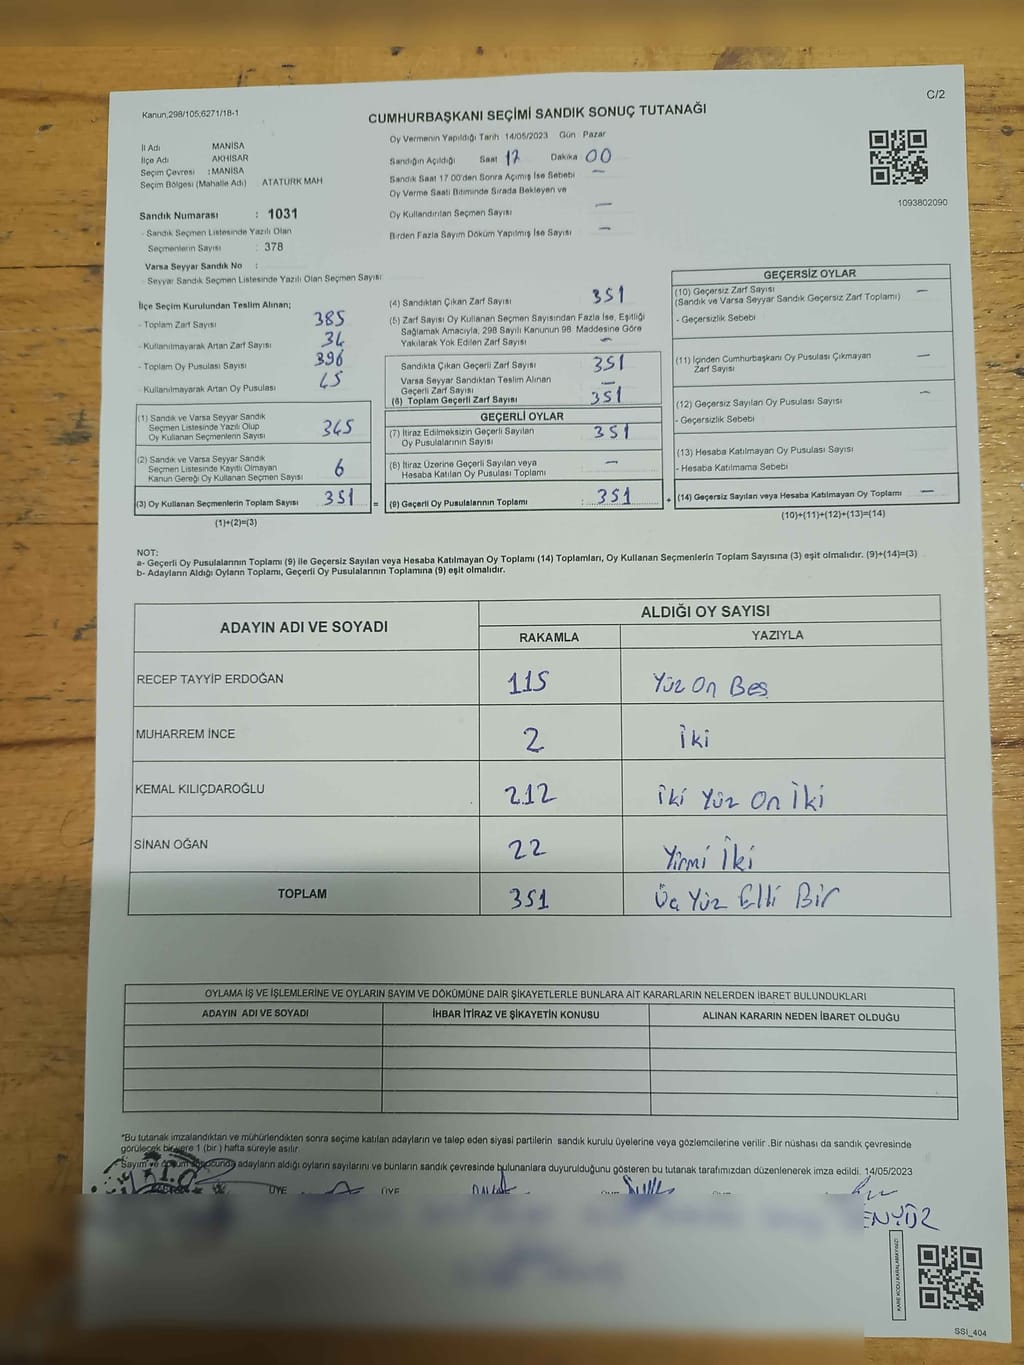 Kanun,298/105;6271/18-1
C/2
CUMHURBAŞKANI SEÇİMİ SANDIK SONUÇ TUTANAĞI
İl Adı MANİSA
İlçe Adı AKHİSAR
Seçim Çevresi : MANİSA
Seçim Bölgesi (Mahalle Adı) ATATÜRK MAH
Oy Vermenin Yapıldığı Tarih 14/05/2023 Gün Pazar
Sandığın Açıldığı Saat 17 Dakika 00
Sandık Saat 17.00'den Sonra Açımış İse Sebebi —
Oy Verme Saati Bitiminde Sırada Bekleyen ve
Oy Kullandırılan Seçmen Sayısı —
Birden Fazla Sayım Döküm Yapılmış İse Sayısı —
1093802090
Sandık Numarası : 1031
- Sandık Seçmen Listesinde Yazılı Olan
Seçmenlerin Sayısı : 378
Varsa Seyyar Sandık No :
- Seyyar Sandık Seçmen Listesinde Yazılı Olan Seçmen Sayısı
İlçe Seçim Kurulundan Teslim Alınan;
- Toplam Zarf Sayısı 385
- Kullanılmayarak Artan Zarf Sayısı 34
- Toplam Oy Pusulası Sayısı 396
- Kullanılmayarak Artan Oy Pusulası 45
(1) Sandık ve Varsa Seyyar Sandık
Seçmen Listesinde Yazılı Olup
Oy Kullanan Seçmenlerin Sayısı 345
(2) Sandık ve Varsa Seyyar Sandık
Seçmen Listesinde Kayıtlı Olmayan
Kanun Gereği Oy Kullanan Seçmen Sayısı 6
(3) Oy Kullanan Seçmenlerin Toplam Sayısı 351 =
(1)+(2)=(3)
(4) Sandıktan Çıkan Zarf Sayısı 351
(5) Zarf Sayısı Oy Kullanan Seçmen Sayısından Fazla İse, Eşitliği
Sağlamak Amacıyla, 298 Sayılı Kanunun 98. Maddesine Göre
Yakılarak Yok Edilen Zarf Sayısı —
Sandıkta Çıkan Geçerli Zarf Sayısı 351
Varsa Seyyar Sandıktan Teslim Alınan
Geçerli Zarf Sayısı —
(6) Toplam Geçerli Zarf Sayısı 351
GEÇERLİ OYLAR
(7) İtiraz Edilmeksizin Geçerli Sayılan
Oy Pusulalarının Sayısı 351
(8) İtiraz Üzerine Geçerli Sayılan veya
Hesaba Katılan Oy Pusulası Toplamı —
(9) Geçerli Oy Pusulalarının Toplamı : 351 +
GEÇERSİZ OYLAR
(10) Geçersiz Zarf Sayısı —
(Sandık ve Varsa Seyyar Sandık Geçersiz Zarf Toplamı)
- Geçersizlik Sebebi
(11) İçinden Cumhurbaşkanı Oy Pusulası Çıkmayan —
Zarf Sayısı
(12) Geçersiz Sayılan Oy Pusulası Sayısı —
- Geçersizlik Sebebi
(13) Hesaba Katılmayan Oy Pusulası Sayısı
- Hesaba Katılmama Sebebi
(14) Geçersiz Sayılan veya Hesaba Katılmayan Oy Toplamı —
(10)+(11)+(12)+(13)=(14)
NOT:
a- Geçerli Oy Pusulalarının Toplamı (9) ile Geçersiz Sayılan veya Hesaba Katılmayan Oy Toplamı (14) Toplamları, Oy Kullanan Seçmenlerin Toplam Sayısına (3) eşit olmalıdır. (9)+(14)=(3)
b- Adayların Aldığı Oyların Toplamı, Geçerli Oy Pusulalarının Toplamına (9) eşit olmalıdır.
ADAYIN ADI VE SOYADI
ALDIĞI OY SAYISI
RAKAMLA YAZIYLA
RECEP TAYYİP ERDOĞAN 115 Yüz On Beş
MUHARREM İNCE 2 İki
KEMAL KILIÇDAROĞLU 212 İki Yüz On İki
SİNAN OĞAN 22 Yirmi İki
TOPLAM 351 Üç Yüz Elli Bir
OYLAMA İŞ VE İŞLEMLERİNE VE OYLARIN SAYIM VE DÖKÜMÜNE DAİR ŞİKAYETLERLE BUNLARA AİT KARARLARIN NELERDEN İBARET BULUNDUKLARI
ADAYIN ADI VE SOYADI İHBAR İTİRAZ VE ŞİKAYETİN KONUSU ALINAN KARARIN NEDEN İBARET OLDUĞU
*Bu tutanak imzalandıktan ve mühürlendikten sonra seçime katılan adayların ve talep eden siyasi partilerin sandık kurulu üyelerine veya gözlemcilerine verilir .Bir nüshası da sandık çevresinde
görülecek bir yere 1 (bir ) hafta süreyle asılır.
adayların aldığı oyların sayılarını ve bunların sandık çevresinde bulunanlara duyurulduğunu gösteren bu tutanak tarafımızdan düzenlenerek imza edildi. 14/05/2023
ÜYE ÜYE
KARE KODU KARALAMAYINIZ!
SSİ_404